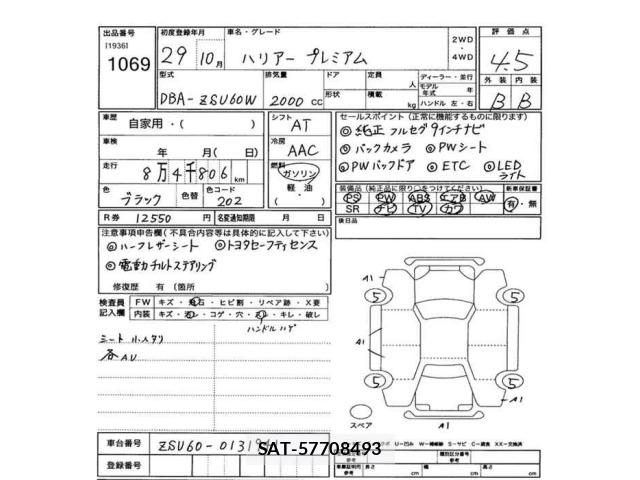 出品番号
[1936]
1069
初度登録年月
29年10月
車名・グレード
ハリアー プレミアム
2WD
・
4WD
評価点
4.5
外装 内装
B B
型式
DBA-ZSU60W
排気量
2000 CC
ドア
形状
定員 人
積載 kg
ディーラー・並行
モデル年式 年
ハンドル 左・右
車歴
自家用・( )
車検
年 月( 日)
走行
8万4千806km
色
ブラック
色替
色コード
202
シフト
AT
冷房
AAC
燃料
ガソリン
軽油・
( )
セールスポイント (正常に機能するものに限ります)
◎純正フルセグ9インチナビ
◎バックカメラ ◎PWシート
◎PWバックドア ◎ETC ◎LEDライト
装備品(純正品に限り○をつけてください)
PS PW ABS エアB AW
SR ナビ TV カワ
新車保証書
有・無
R券 12550 円
名変通知期限 月 日
後日品
注意事項申告欄(不具合内容等は具体的に記入して下さい)
◎ハーフレザーシート ◎トヨタセーフティセンス
◎電動チルトステアリング
修復歴 有(箇所 )
検査員記入欄
FW キズ・飛石・ヒビ割・リペア跡・X要
内装 キズ・汚レ・コゲ・穴・スレ・キレ・破レ
ハンドルハゲ
シート
各AU
A1
5 5
A1
5 5
A1
A1
スペア
U-凹み W-補修跡 S-サビ C-腐食 XX-交換済
車台番号
ZSU60-0131
SAT-57708493
登録番号
車証明印
参考
長さ cm
幅 cm
高さ cm
類別区分番号